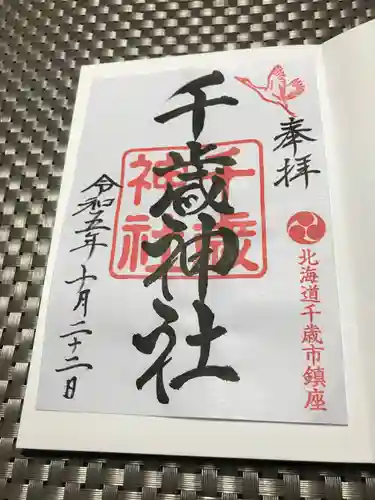 奉拝
北海道千歳市鎮座
千歳神社
千歳
神社
令和五年 十月二十二日